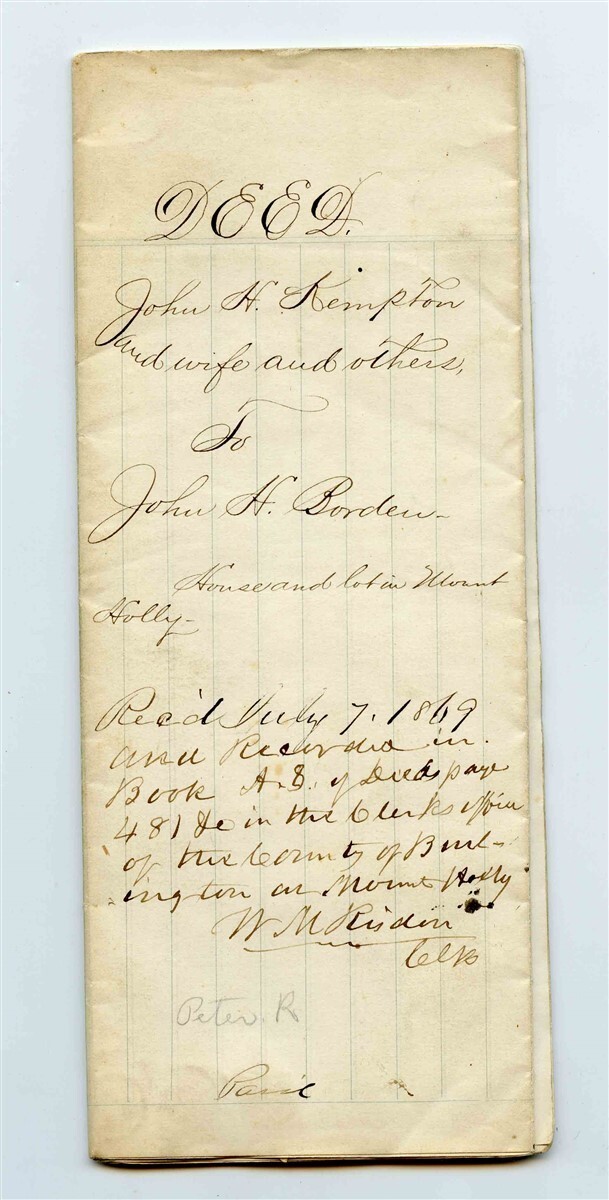 DEED.
John H. Kempton
and wife and others,
To
John H. Borden
House and lot in Mount
Holly
Rec'd July 7. 1869
and Recorded in
Book A. 8. of Deeds page
481 &c in the Clerks office
of the County of Burl-
ington at Mount Holly
W M Risdon
Clk
Peter. R
Paid